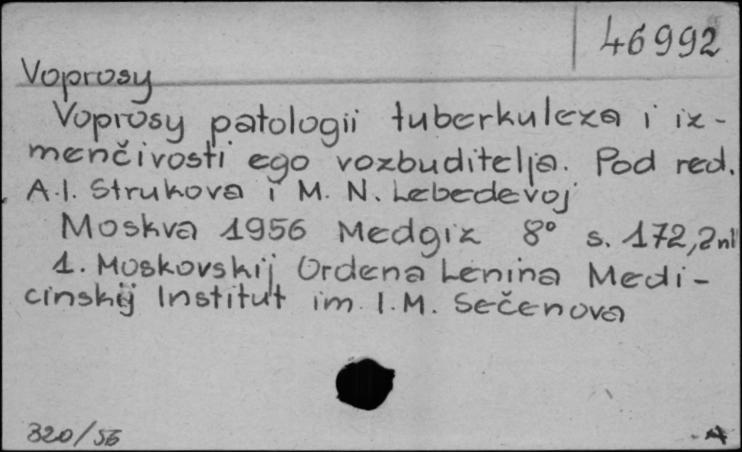 46992
Voprosy
Voprosy patologii tuberkuleza i iz-
menčivosti ego vozbuditelja. Pod red.
A.I. Strukova i M. N. Lebedevoj
Moskva 1956 Medgiz 8° s. 172,2nl
1. Moskovskij Ordena Lenina Medi-
cinskij Institut im. I.M. Sečenova
320/56
A